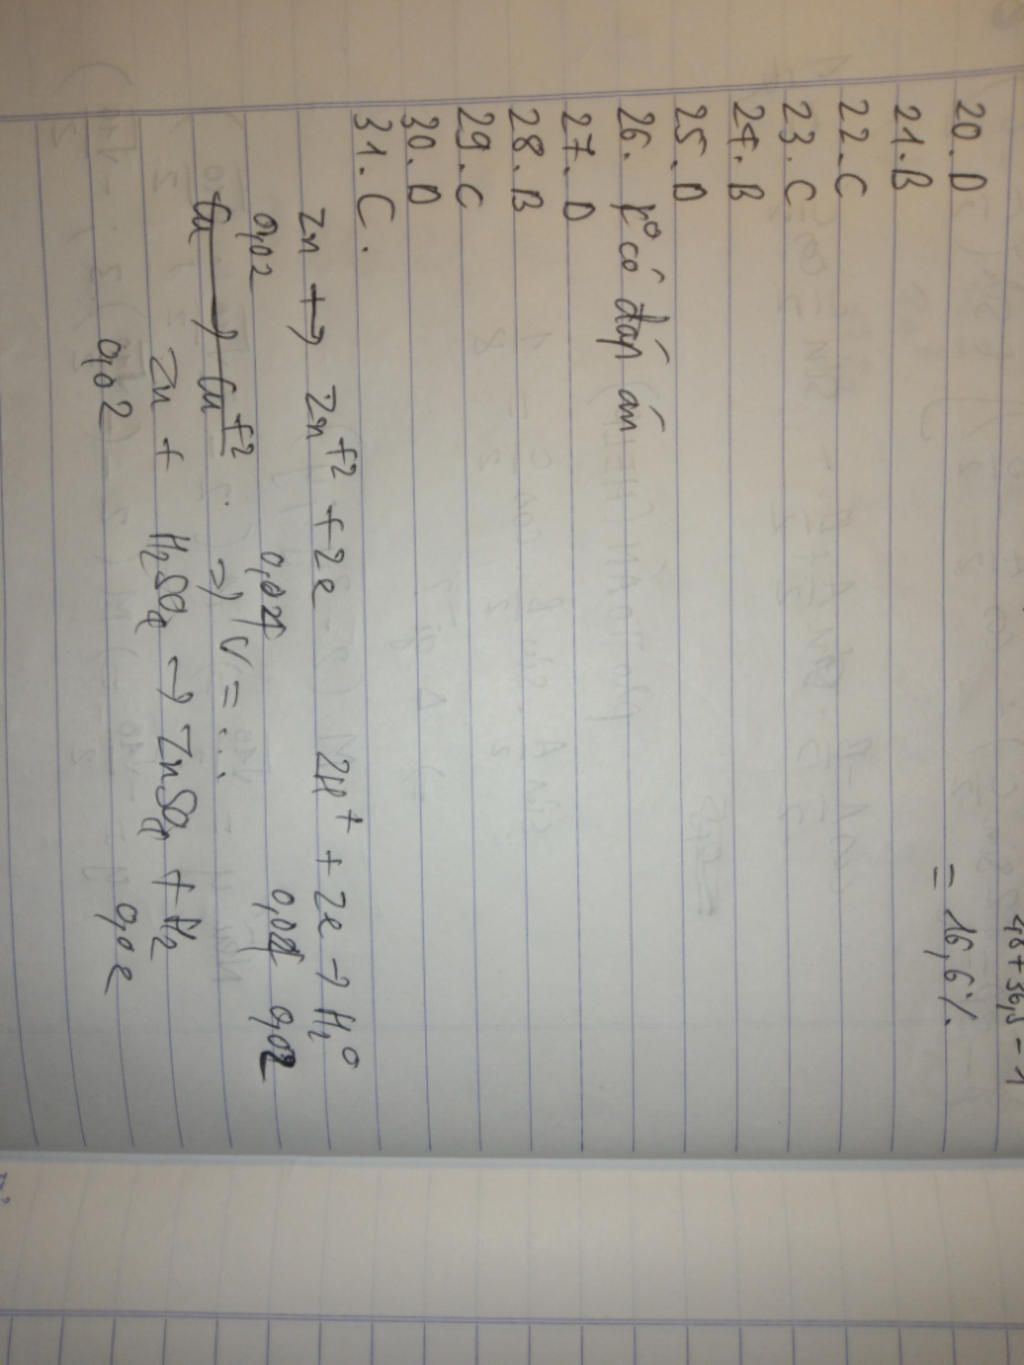 48+36,5-1
20. D = 16,6%.
21. B
22. C
23. C
24. B
25. D
26. k° có đáp án
27. D
28. B
29. C
30. D
31. C.
Zn → Zn⁺² + 2e 2H⁺ + 2e → H₂⁰
0,02 0,04 0,04 0,02
Cu → Cu⁺² . => V = ...
Zn + H₂SO₄ → ZnSO₄ + H₂
0,02 0,02